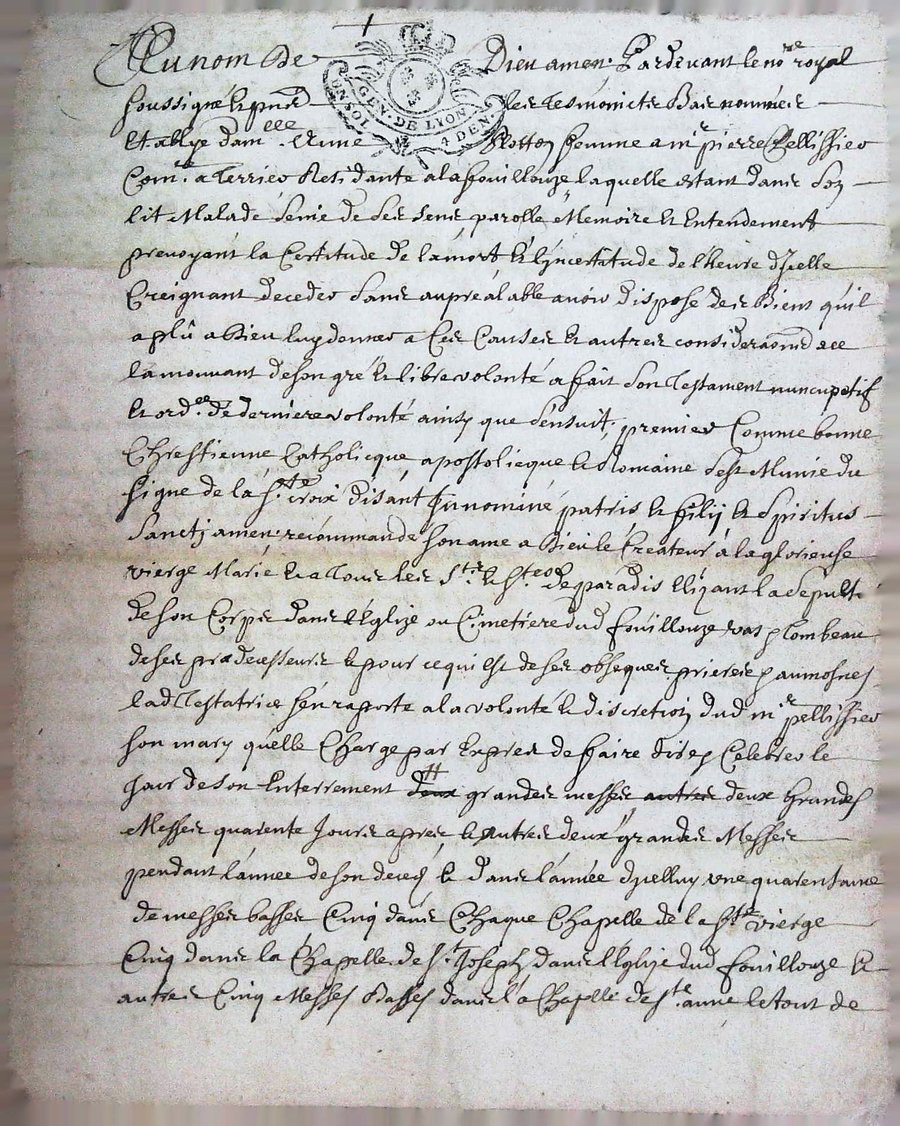 Au nom de Dieu amen; Pardevant le no.re royal
GEN. DE LYON
UN SOL 4 DEN.
soussigné & pnts les tesmoins Bas nommés
Establye dam.lle Anne Rotton femme a m.r pierre Pellissier
Com.re a Terrier Residante a la fouillouze laquelle estant dans son
lit Malade senie de ses sens parolle Memoire & Entendement
prevoyant la Certitude de la mort & l'yncertitude de l'heure d'ycelle
Creignant deceder sans aupréalable avoir disposé des Biens qu'il
a plû a Dieu luy donner a ces Causes & autres considera͠ons a ce
la mouvant de son gré & libre volonté a fait son Testament nuncupatif
& ord.ce de derniere volonté ainsy que s'ensuit, premier Comme bonne
Chrestienne Catholicque apostolicque & Romaine s'est Munie du
signe de la S.te croix disant In nominé patris & filij & Spiritus
Sanctj amen; recommande son ame a Dieu le Createur à la glorieuse
vierge Marie & a Tous les S.ts & S.tes de paradis Elizant la sepult.
de son Corps dans l'Eglize ou Cimetiere dud fouillouze vas & tombeau
de ses prædecesseurs & pour ce qui est de ses obseques prieres & aumosnes
lad Testatrice s'en raporte a la volonté & discretion dud m.r pellissier
son mary qu'elle Charge par Exprès de faire dire & Celebrer le
Jour de son Enterrement deux grandes messes autres deux Grandes
Messes quarente Jours apres & autres deux grandes Messes
pendant l'année de son deceq & dans l'année d'ycelluy une quarentaine
de messes basses Cinq dans Chaque Chapelle de la S.te vierge
Cinq dans la Chapelle de S.t Joseph dans l'Eglize dud fouillouze &
autres Cinq Messes Basses dans la Chapelle de S.te anne le tout de